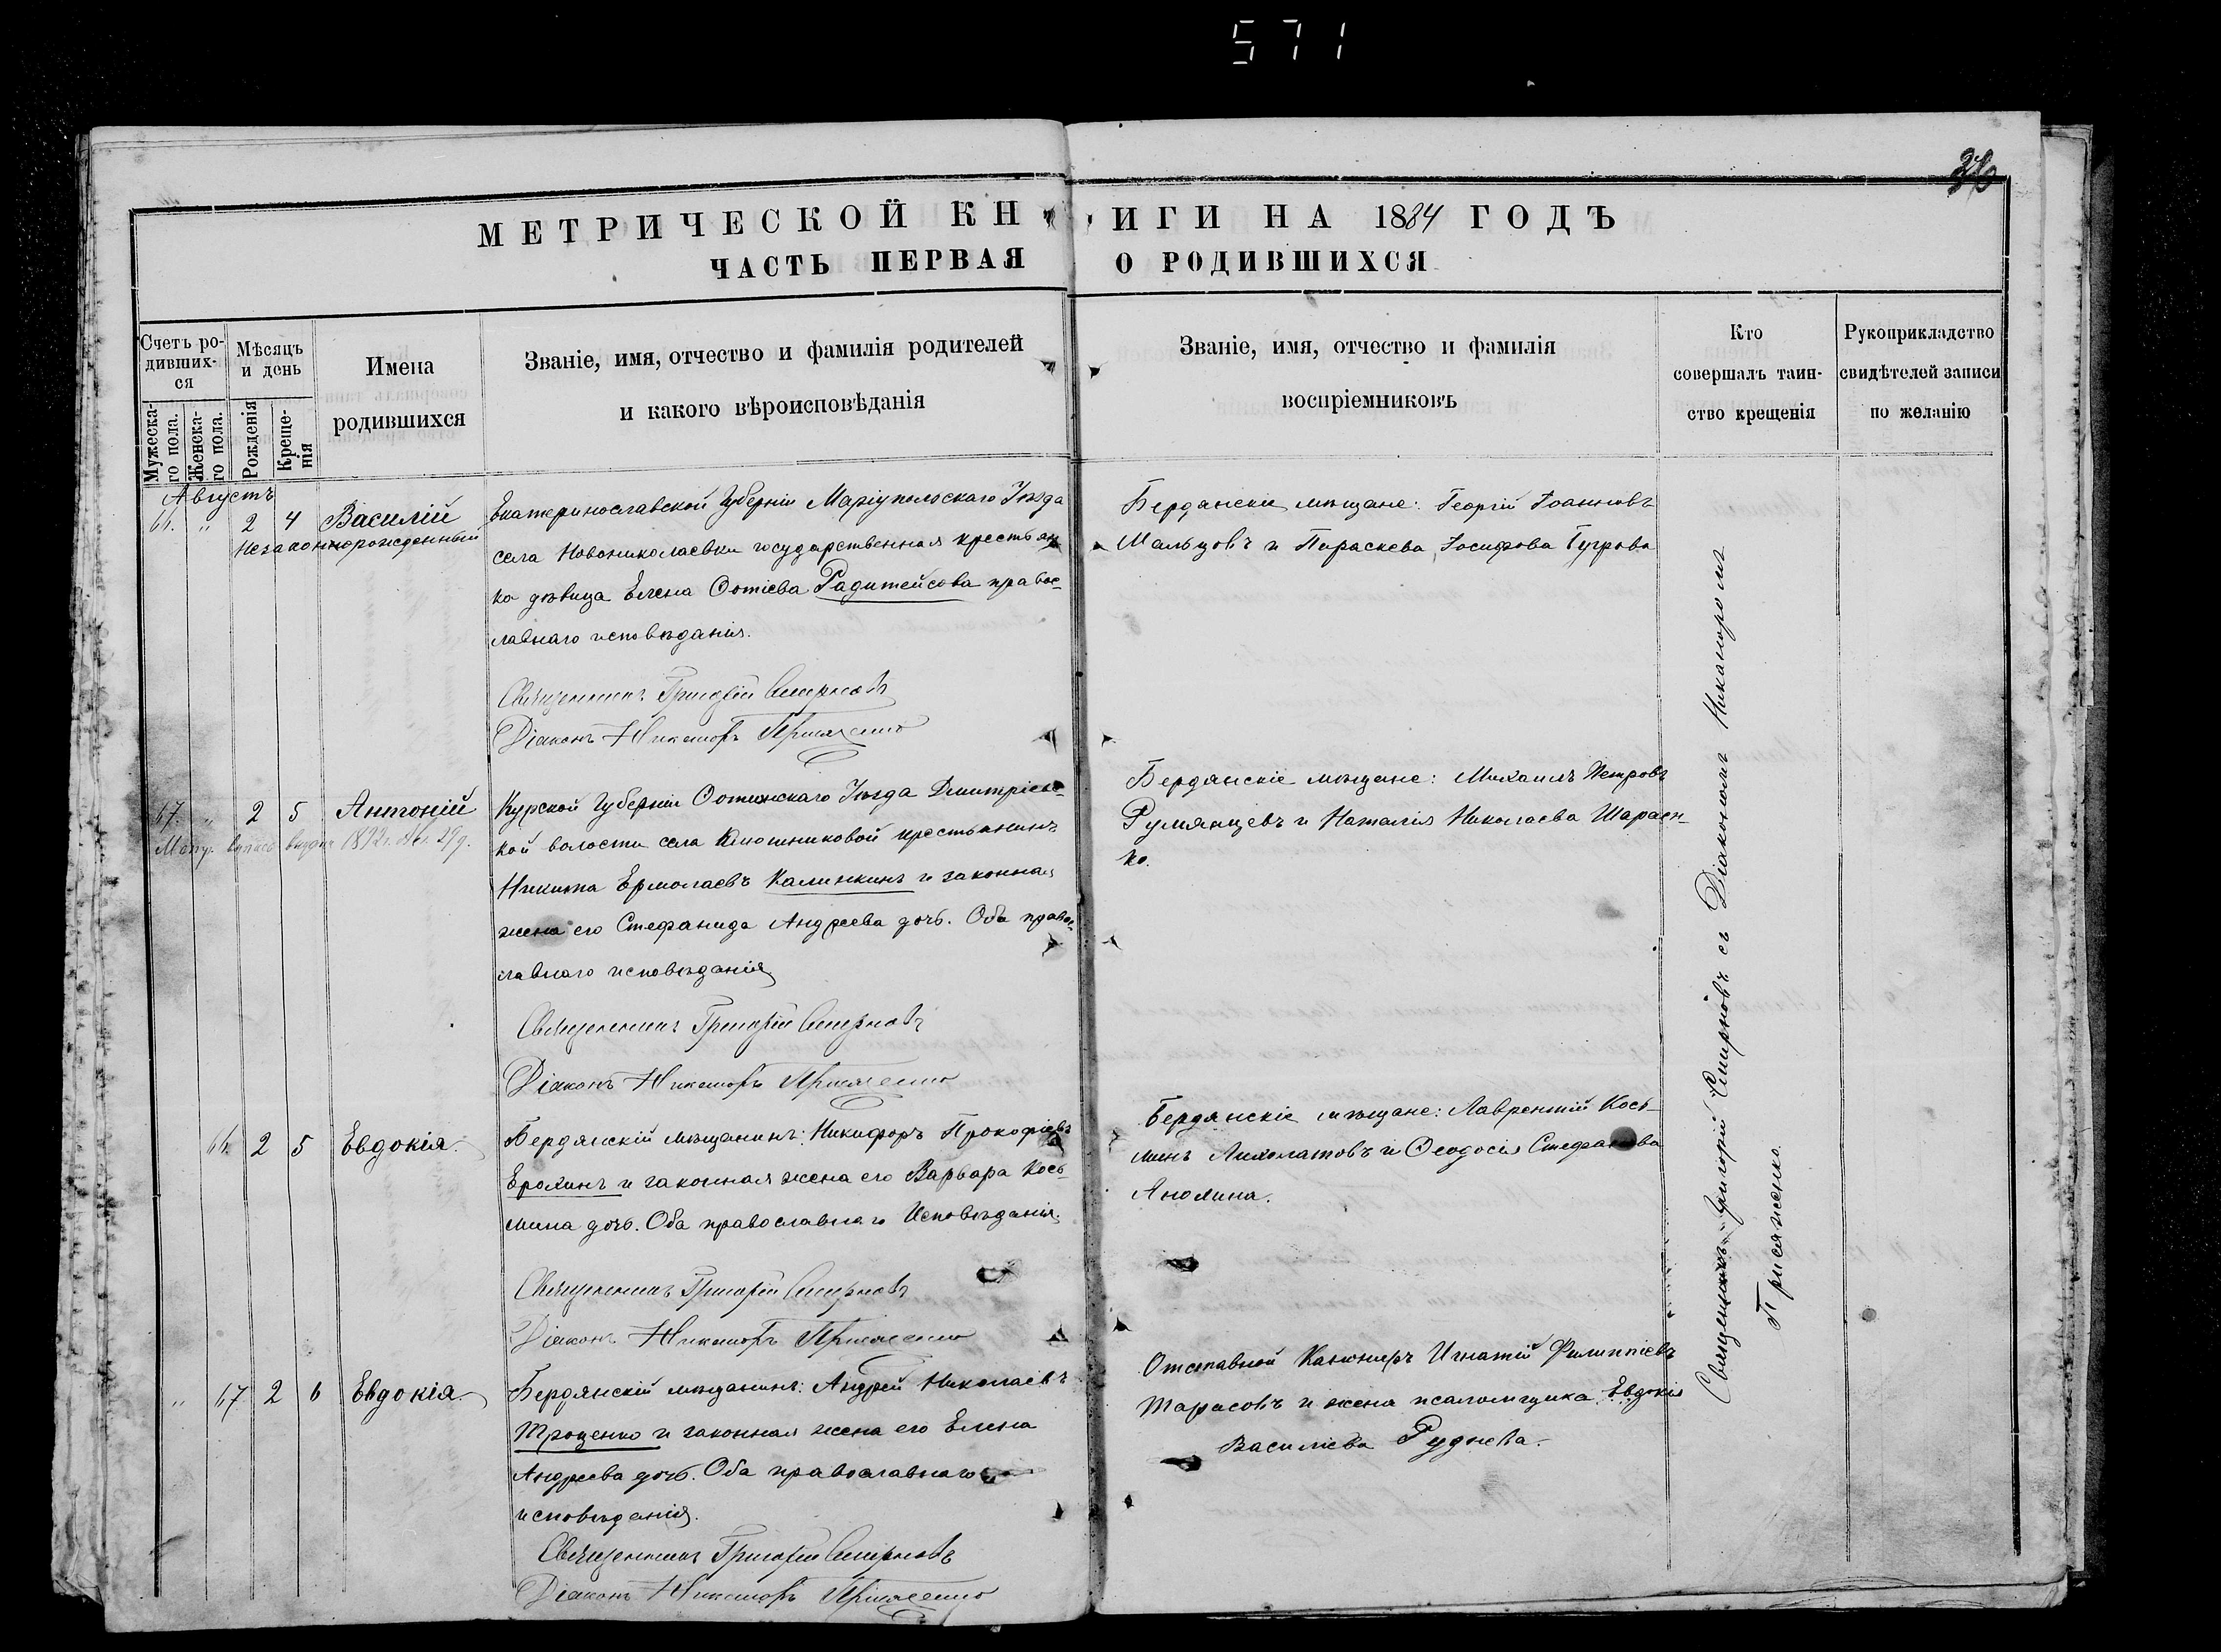 571
36
МЕТРИЧЕСКОЙ КНИГИ НА 1884 ГОДЪ
ЧАСТЬ ПЕРВАЯ О РОДИВШИХСЯ
Счетъ ро-
дивших-
ся
Мужеска-
го пола.
Женска-
го пола.
Мѣсяцъ
и день
Рожденія
Креще-
нія
Имена
родившихся
Званіе, имя, отчество и фамилія родителей
и какого вѣроисповѣданія
Званіе, имя, отчество и фамилія
воспріемниковъ
Кто
совершалъ таин-
ство крещенія
Рукоприкладство
свидѣтелей записи
по желанію
Августъ
66. " 2 4 Василій
Незаконнорожденный
Екатеринославской Губерніи Маріупольскаго Уѣзда
села Новониколаевки государственная крестьян
ка дѣвица Елена Фотіева правос-
лавнаго исповѣданія.
Священникъ Григорій Смирновъ
Діаконъ Никаноръ Присяженко
Бердянскіе мѣщане: Георгій Іоанновъ
Мальцовъ и Параскева Іосифова
67. " 2 5 Антоній
выдан 1892 г. № 299.
Курской Губерніи Уѣзда Дмитріевс-
кой волости села крестьянинъ
Никита Ермолаевъ Калинкинъ и законная
жена его Стефанида Андреева дочь. Оба правос-
лавнаго исповѣданія
Священникъ Григорій Смирновъ
Діаконъ Никаноръ Присяженко
Бердянскіе мѣщане: Михаилъ Петровъ
Румянцевъ и Наталія Николаева Шараен-
ко.
66. 2 5 Евдокія.
Бердянскій мѣщанинъ: Никифоръ Прокофіевъ
Ерохинъ и законная жена его Варвара Кось-
мина дочь. Оба православнаго Исповѣданія.
Священникъ Григорій Смирновъ
Діаконъ Никаноръ Присяженко
Бердянскіе мѣщане: Лаврентій Кось-
минъ и Ѳеодосія Стефанова
Анохина.
" 67 2 6 Евдокія.
Бердянскій мѣщанинъ: Андрей Николаевъ
Троценко и законная жена его Елена
Андреева дочь. Оба православнаго
исповѣданія.
Священникъ Григорій Смирновъ
Діаконъ Никаноръ Присяженко
Отставной Канониръ Игнатій Филиппіевъ
Тарасовъ и жена псаломщика Евдокія
Василіева Руднева.
Священникъ Григорій Смирновъ съ Діакономъ Никаноромъ
Присяженко.